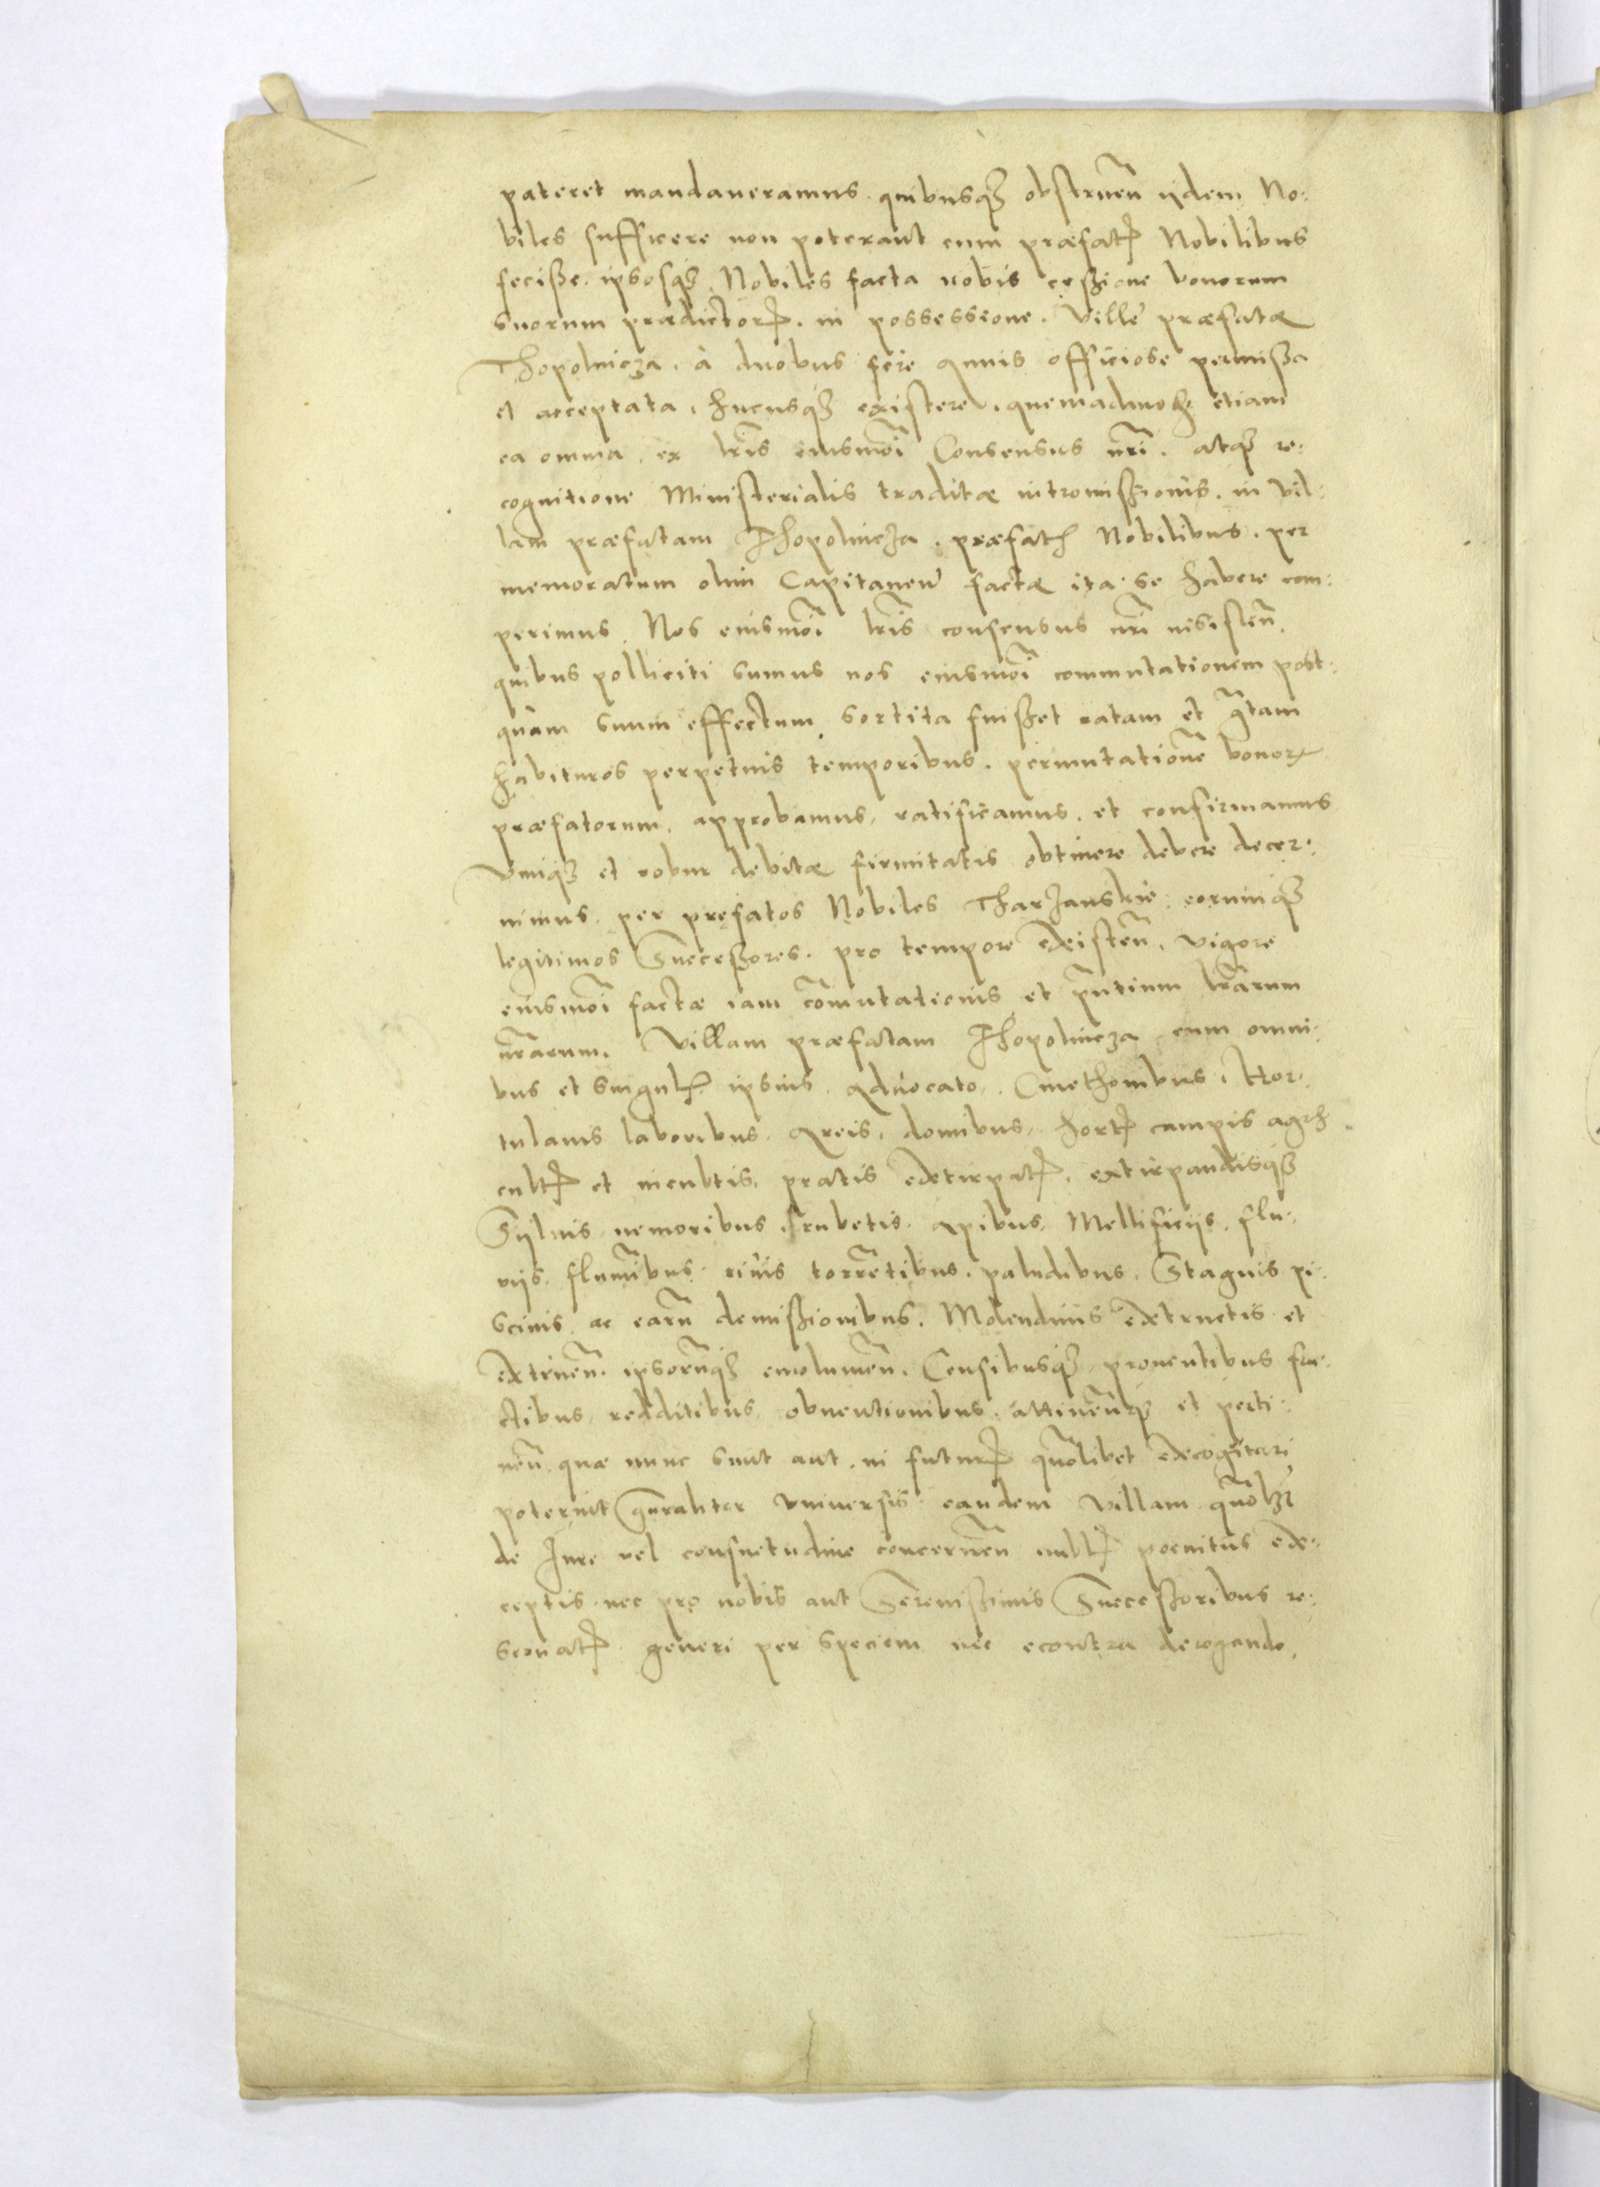 pateret mandaueramus quibusqȝ obstruen̄ ijdem No-
biles sufficere non poterant cum præfat Nobilibus
fecisse ipsosqȝ Nobiles facta nobis cessione bonorum
suorum prædictor. in possessione. Villæ præfatæ
Thopolnicza. à duobus fere annis officiose permissa
et acceptata, hucusqȝ existere, quemadmodȝ etiam
ea omnia ex lr̄is eiusmōi Consensus nr̄i. atqȝ re-
cognitione Ministerialis traditæ intromissionis. in vil-
lam præfatam Thopolnicza. præfat Nobilibus. per
memoratum olim Capitaneū factæ ita se habere com-
perimus. Nos eiusmōi lr̄is consensus nr̄i insisten̄.
quibus polliciti sumus nos eiusmōi commutationem post-
quam suum effectum sortita fuisset ratam et gr̄tam
habituros perpetuis temporibus. permutationē bonor
præfatorum, approbamus, ratificamus. et confirmamus
Vimqȝ et robur debitæ firmitatis obtinere debere decer-
nimus. per præfatos Nobiles Tharzanskie eorumqȝ
legitimos Successores. pro tempore existen̄. vigore
eiusmōi factæ iam cōmutationis et pn̄tium lr̄arum
nr̄arum. Villam præfatam Thopolnicza cum omni-
bus et singul ipsius Aduocato, Cmethonibus, Hor-
tulanis laboribus Areis, domibus, hort campis agr
cult et incultis, pratis extirpat, extirpandisqȝ
Syluis nemoribus, rubetis apibus, Mellificijs, flu-
uijs, fluminibus riuis torrētibus, paludibus, Stagnis pi-
scinis ac earū demissionibus. Molendinis extructis et
extruen̄. ipsorūqȝ emolumen̄. Censibusqȝ prouentibus fru-
ctibus, redditibus, obuentionibus. attinen̄qȝ et perti-
nen̄ quæ nunc sunt aut in futur quōlibet excogitari
poterint gn̄raliter vniuersis eandem villam quōlȝ
de Iure vel consuetudine concernen̄ null poenitus ex-
ceptis nec pro nobis aut Serenissimis Successoribus re-
seruat generi per speciem nec econtra derogando.